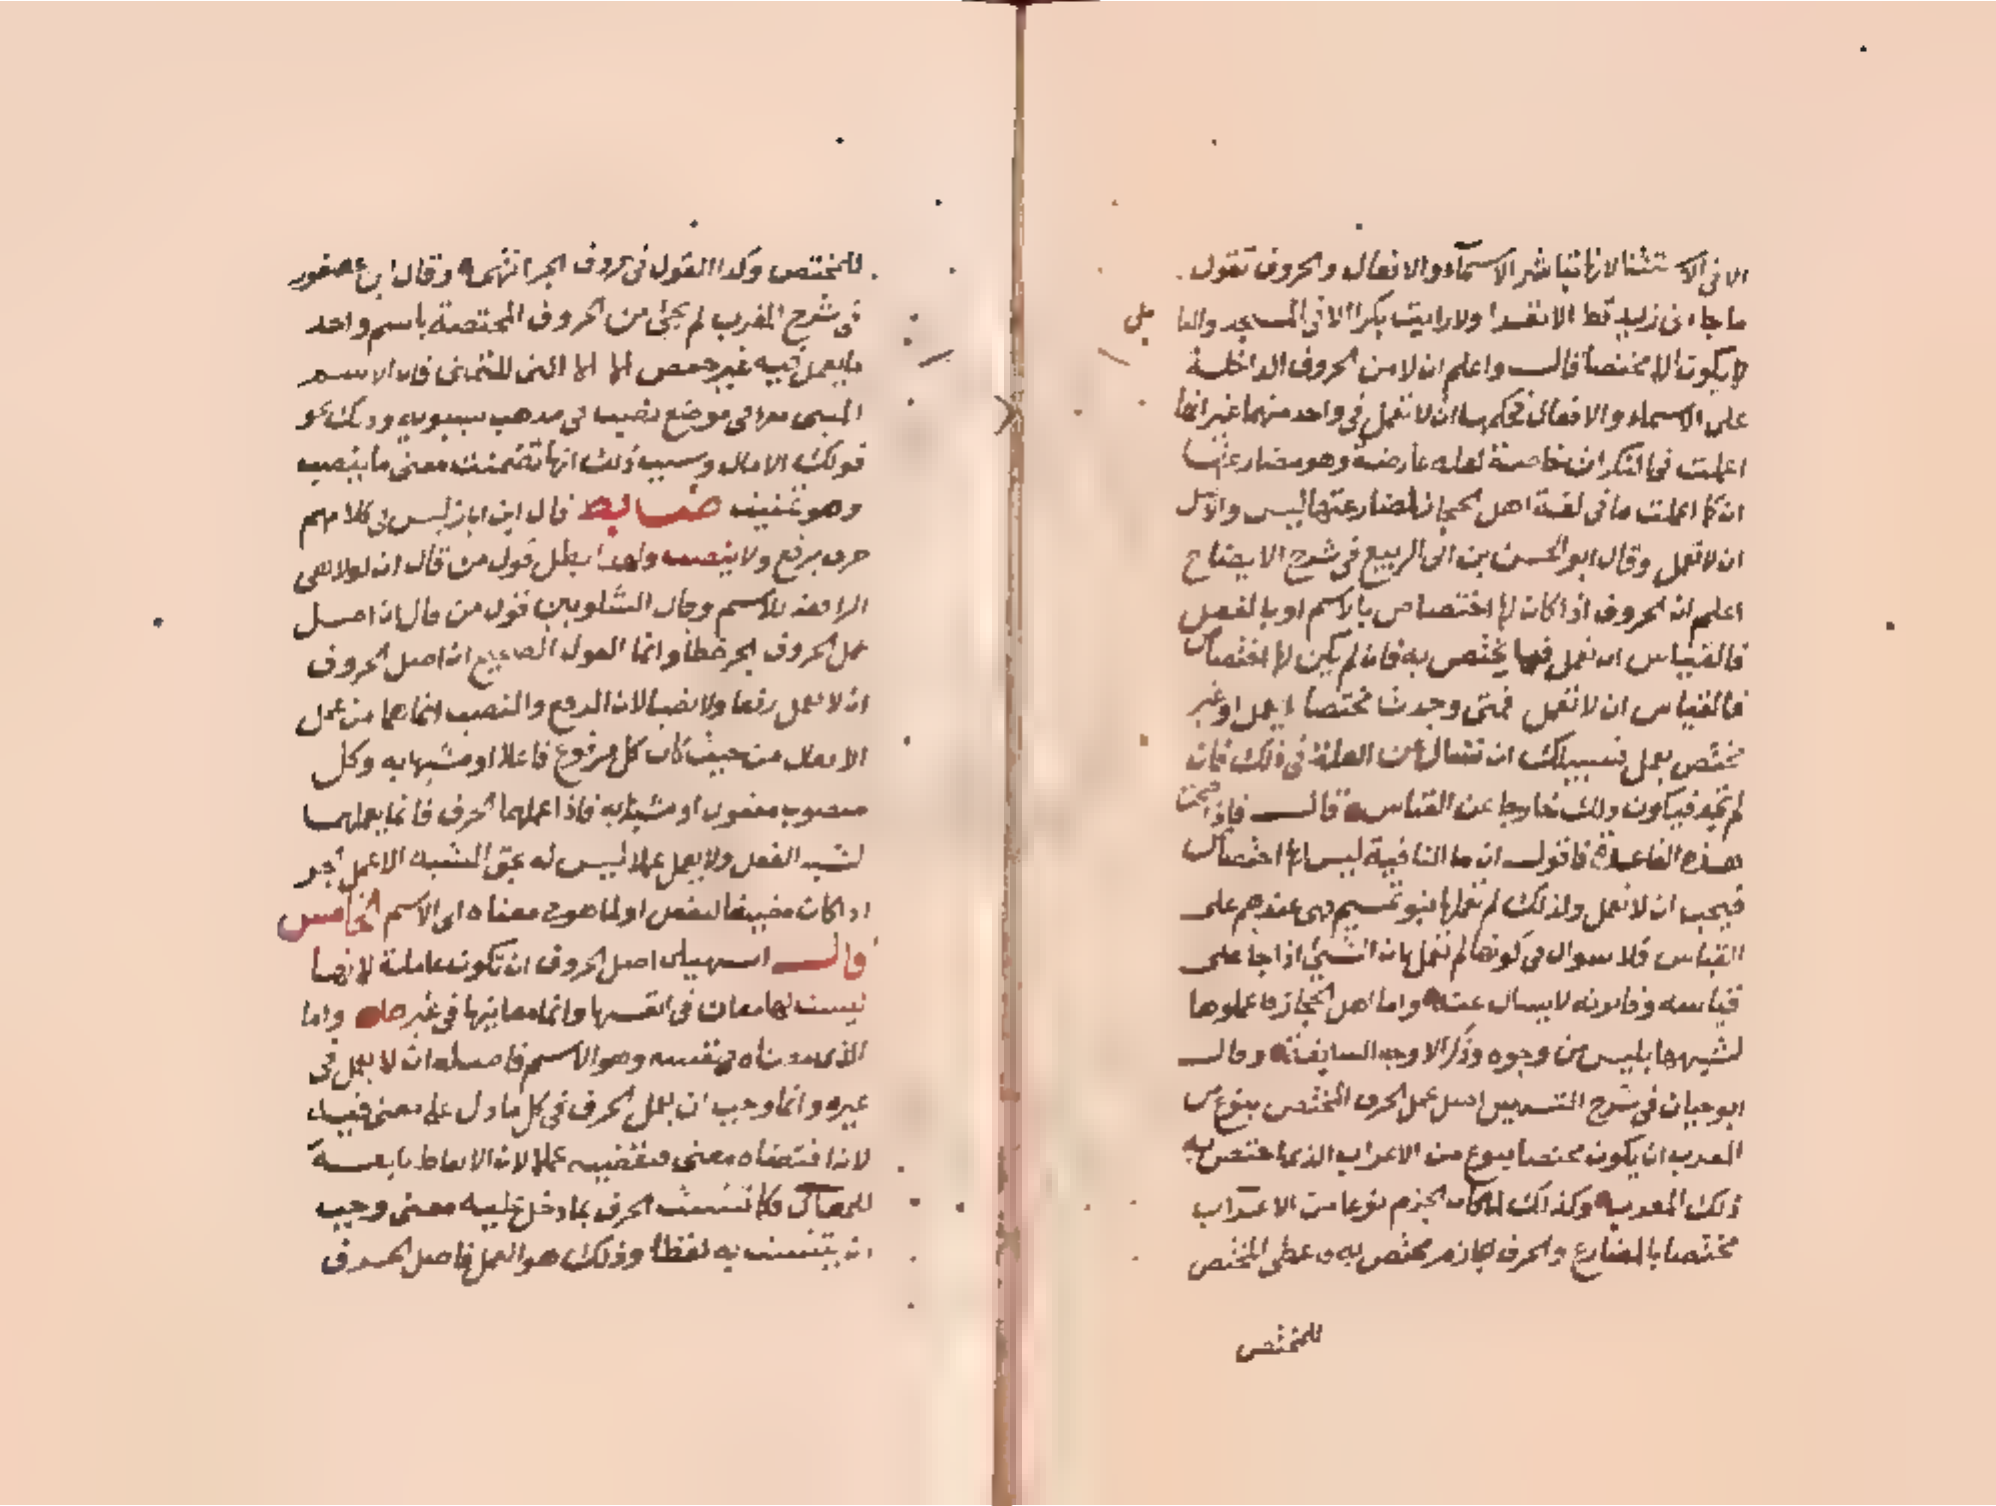 الا في الاستثنا لانها تباشر الاسماء والافعال والحروف تقول
ما جاءني زيد قط الا نفدا ولا رايت بكرا الا في المسجد والفا
لا يكون الا مختصا قالــ واعلم ان لا من الحروف الداخلة
على الاسماء والافعال فحكمها ان لا تعمل في واحد منهما غير انها
اعلمت في النكرات خاصة لعله عارضة وهو مضارعتها
ان كما اعملت ما في لغة اهل الحجاز لمضارعتها ليس والاصل
ان لا تعمل وقال ابو الحسن بن ابي الربيع في شرح الايضاح
اعلم ان الحروف اذا كان لها اختصاص بالاسم او بالفعل
فالقياس ان تعمل فيما يختص به فان لم يكن لها اختصاص
فالقياس ان لا تعمل فمتى وجدت مختصا لا يعمل او غير
مختص يعمل فسبيلك ان تسال عن العلة في ذلك فان
لم تجد فيكون ذلك خارجا عن القياس قالــ فاذا صحت
هذه القاعدة فاقول ان ما النافية ليس لها اختصاص
فيجب ان لا تعمل ولذلك لم تعملها بنو تميم فهى عندهم على
القياس فلا سوال في كونها لم تعمل لان الشيئ اذا جا على
قياسه وقانونه لا يسال عنه واما اهل الحجاز فاعملوها
لشبهها بليس من وجوه وذكر الاوجه السابقة وقالــ
ابو حيان في شرح التسهيل اصل عمل الحرف المختص بنوع من
المعرب ان يكون مختصا بنوع من الاعراب الذى اختص به
ذلك المعرب وكذلك لما كان الجزم نوعا من الاعراب
مختصا بالمضارع والحرف الجازم مختص به وعطى المختص
للمختص
للمختص وكدا القول في حروف الجر انتهى وقال ابن عصفور
في شرح المقرب لم يجئ من الحروف المختصة باسم واحد
ما يعمل فيه غير خفض الا الا التى للتمنى فان الاسم
المبنى معها في موضع نصب في مدهب سيبويه ودلك نحو
قولك الا مال وسبب ذلك انها تضمنت معنى ما ينصب
وهو تمنيت ضابط قال ابن اياز ليس في كلامهم
حرف يرفع ولا ينصب ولهذا بطل قول من قال ان لولا هى
الرافعة للاسم وقال الشلوبين قول من قال ان اصل
عمل الحروف الجر خطأ وانما القول الصحيح ان اصل الحروف
ان لا تعمل رفعا ولا نصبا لان الرفع والنصب انما هما من عمل
الافعال من حيث كان كل مرفوع فاعلا او مشبها به وكل
منصوب مفعول او مشبها به فاذا عملهما الحرف فانما يعملهما
لشبه الفعل ولا يعمل عملا ليس له بحق الشبه الا عمل الجر
اذا كان مضيفا للفعل او لما هو في معناه الى الاسم الخامس
قالــ السهيلى اصل الحروف ان تكون عاملة لانها
ليست لها معان في انفسها وانما معانيها في غيرها واما
الذى معناه في نفسه وهو الاسم فاصله ان لا يعمل في
غيره وانما وجب ان يعمل الحرف في كل ما دل على معنى فيه
لانه اقتضاه معنى فيقتضيه عملا لان الالفاظ تابعة
للمعانى فكما تشبث الحرف بما دخل عليه معنى وجب
ان يتشبث به لفظا وذلك هو العمل فاصل الحرف